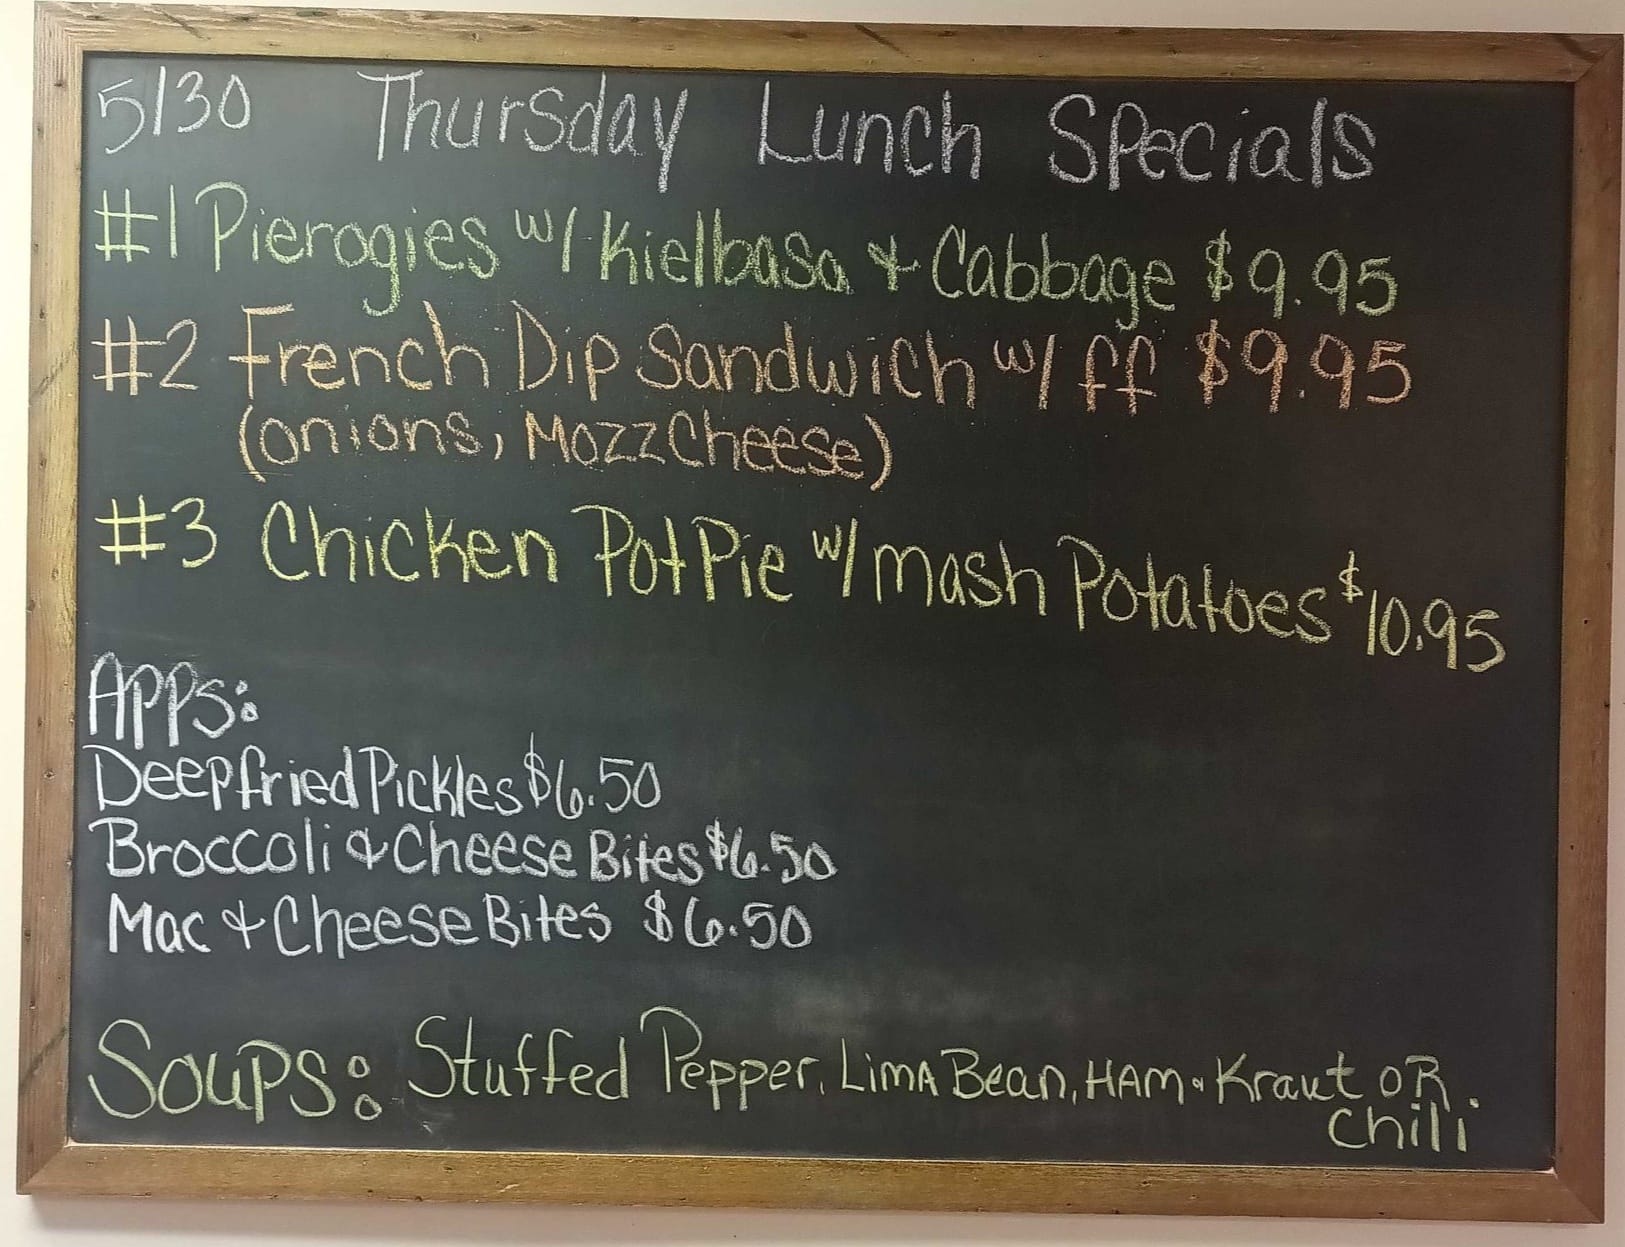 5/30 Thursday Lunch Specials
#1 Pierogies w/ Kielbasa & Cabbage $9.95
#2 French Dip Sandwich w/ ff $9.95
(onions, Mozz Cheese)
#3 Chicken Pot Pie w/ mash Potatoes $10.95
Apps:
Deep fried Pickles $6.50
Broccoli & Cheese Bites $6.50
Mac & Cheese Bites $6.50
Soups: Stuffed Pepper, Lima Bean, HAM & Kraut OR
Chili.